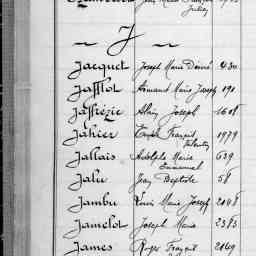 ~ J ~
Jacquet Joseph Marie Désiré 430
Jafflot Armand Marie Joseph 190
Jaffrézic Alain Joseph 1608
Jahier François 1979
Jallais Adolphe Marie 639
Emmanuel
Jalu Jean Baptiste 58
Jambu Louis Marie Joseph 2048
Jamelot Joseph Marie 2383
James Roger François 2169